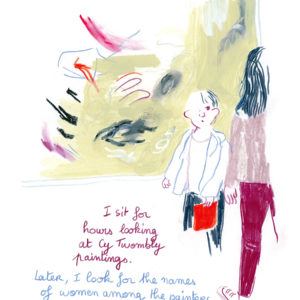 I sit for
hours looking
at Cy Twombly
paintings.
Later, I look for the names
of women among the painter